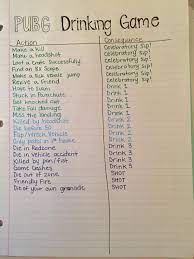 PUBG Drinking Game
Action Consequence
Make a kill Celebratory Sip!
Make a headshot Celebratory Sip!
Loot a Crate Successfully Celebratory Sip!
Find an 8x Scope Celebratory Sip!
Make a sick vehicle jump Celebratory Sip!
Revive a friend Celebratory Sip!
Have to Swim Drink 1
Stuck in Parachute Drink 1
Get knocked out Drink 1
Take Fall damage Drink 1
Miss the landing Drink 1
Killed by headshot Drink 2
Die before 50 Drink 2
Flip/Wreck Vehicle Drink 2
Only pistol in 1st house Drink 2
Die in Redzone Drink 3
Die in vehicle accident Drink 3
Killed by pan/fist Drink 3
Game Crashes Drink 3
Die out of zone SHOT
Friendly Fire SHOT
Die of your own grenade SHOT